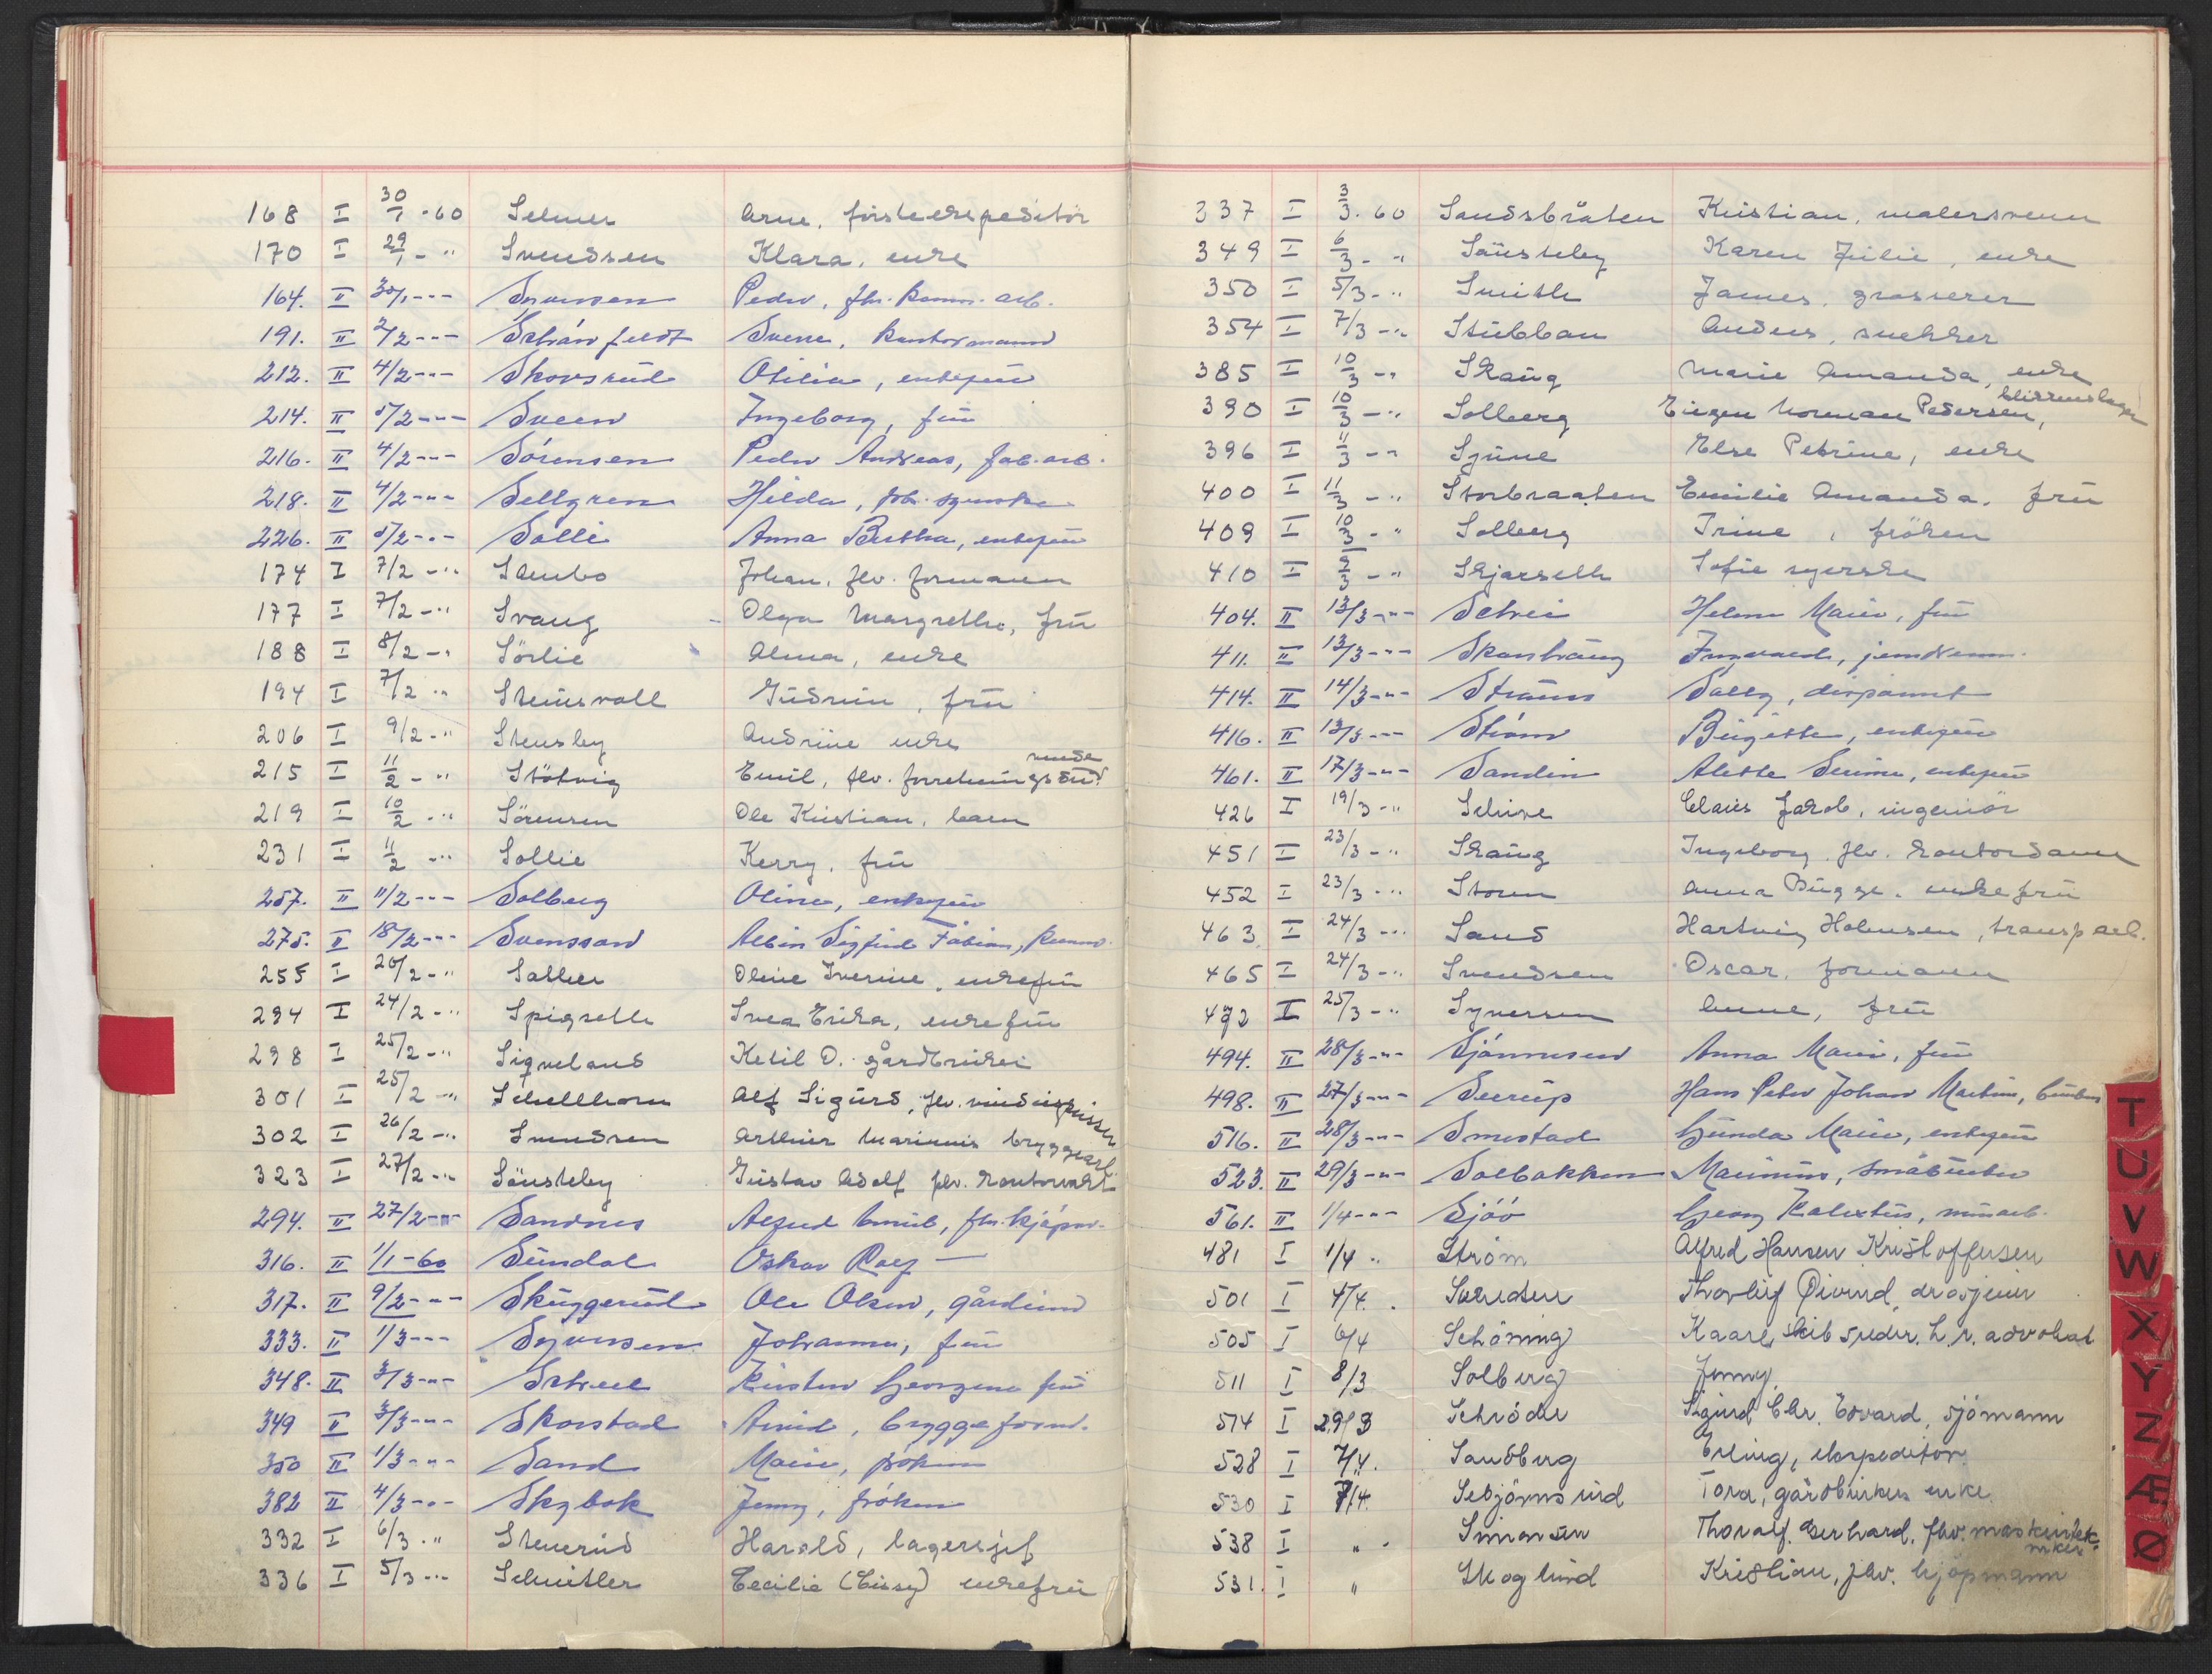 168 I 30/1 - 60 Selmer Arne, førsteekspeditør
170 I 29/1 - " Svendsen Klara, enke
164. II 30/1 - " - Syversen Peder, fhv. komm. arb.
191. II 2/2 - " - Schrøn feldt Sverre, kontormann
212. II 4/2 - " - Skovsrud Otilie, enkefru
214. II 5/2 - " - Sveen Ingeborg, fru
216. II 4/2 - " - Sörensen Peder Andreas, fab. arb.
218. II 4/2 - " - Sellgren Hilda, fab. syerske
226. II 5/2 - " - Solli Anna Bertha, enkefru
174 I 7/2 - " Stenbo Johan, fhv. formann
177 I 7/2 - " Svang Olga Margrethe, fru
188 I 8/2 - " Sörlie Alma, enke
194 I 7/2 " Steinsvoll Gudrun, fru
206 I 9/2 - " Stensby Andrine enke
215 I 11/2 - " Stötvig Emil, fhv. forretnings
219 I 10/2 - " Sörensen Ole Kristian, barn
231 I 11/2 - " Sollie Kerry, fru
257. II 11/2 - " - Solberg Oline, enkefru
275. II 18/2 - " - Svensson Albin Sigfrid Fabian,
255 I 20/2 - " Sather Oline Iverine, enkefru
294 I 24/2 - " Spigseth Svea Erika, enkefru
298 I 25/2 - " Sigveland Ketil O. gårdbruker
301 I 25/2 - " Schellhorn Alf Sigurd, fhv. vinduspusser
302 I 26/2 - " Svendsen Arthur Marinius bryggearb.
323 I 27/2 - " Sönsteby Gustav Adolf fhv. kontorvakt
294. II 27/2 - " - Sandnes Alfred Emil, fhv. kjöpm.
316. II 1/1 - 60 Sundal Oskar Rolf —
317. II 9/2 - " - Skuggerud Ole Olsen, gårdeier
333. II 1/3 - " - Syversen Johanna, fru
348. II 3/3 - " - Schreel Kirsten Georgene fru
349 II 3/3 - " - Skorstad Arvid, bryggeform.
350 II 1/3 - " - Sand Marie, fröken
382 II 4/3 - " - Skybak Jenny, fröken
332 I 6/3 . " Stenerud Harald, lagersjef
336 I 5/3 - " Schnitler Cecilie (Cissy) enkefru
337 I 3/3 . 60 Sandsbråten Kristian, malersvenn
349 I 6/3 - " Sönsteby Karen Julie, enke
350 I 5/3 - " Smith James, grosserer
354 I 7/3 - " Stubban Anders, snekker
385 I 10/3 - " Skaug Marie Amanda, enke
390 I 10/3 - " Solberg Eugen Norman Pedersen, blikkenslager
396 I 11/3 - " Sjune Else Petrine, enke
400 I 11/3 - " Storbraaten Emilie Amanda, fru
409 I 10/3 - " Solberg Trine, fröken
410 I 9/3 - " Skjærseth Sofie syerske
404. II 13/3 - " - Schrei Helene Marie, fru
411. II 13/3 - " - Skonhaug Ingvald,
414. II 14/3 - " - Strauss Sally, disponent
416. II 13/3 - " - Ström Birgitte, enkefru
461. II 17/3 - " - Sandin Alette Serine, enkefru
426 I 19/3 - " Schive Claus Jakob, ingeniör
451 I 23/3 - " Skaug Ingeborg, fhv. kontordame
452 I 23/3 - " Storen Anna Bugge, enkefru
463 I 24/3 - " Sand Hartvig Holmsen, transp arb.
465 I 24/3 - " Svendsen Oscar, formann
492 I 25/3 - " Syversen Anne, fru
494. II 28/3 - " - Sjönnesen Anna Marie, fru
498. II 27/3 - " - Seerup Hans Peder Johan Martin,
516. II 28/3 - " - Smestad Gunda Marie, enkefru
523. II 29/3 - " - Solbakken Marinius, småbruker
561. II 1/4 - " - Sjöö Georg Kalixtus,
481 I 1/4 " Ström Alfred Hansen Kristoffersen
501 I 4/4 . Thorleif Øivind, drosjeeier
505 I 6/4 Schöning Kaare, h.r. advokat
511 I 8/3 Solberg Jenny
514 I 29/3 Schröder Sigurd Chr. Edvard, sjömann
528 I 7/4. Sandberg Erling, ekspeditör
530 I 7/4. Sebjörnsrud Tora, gårdbrukers enke
538 I " Simonsen Thoralf Gerhard, fhv. maskintek-
niker
531. I " Skoglund Kristian, fhv. kjøpmann
T
U
V
W
X
Y
Z
Æ
Ø